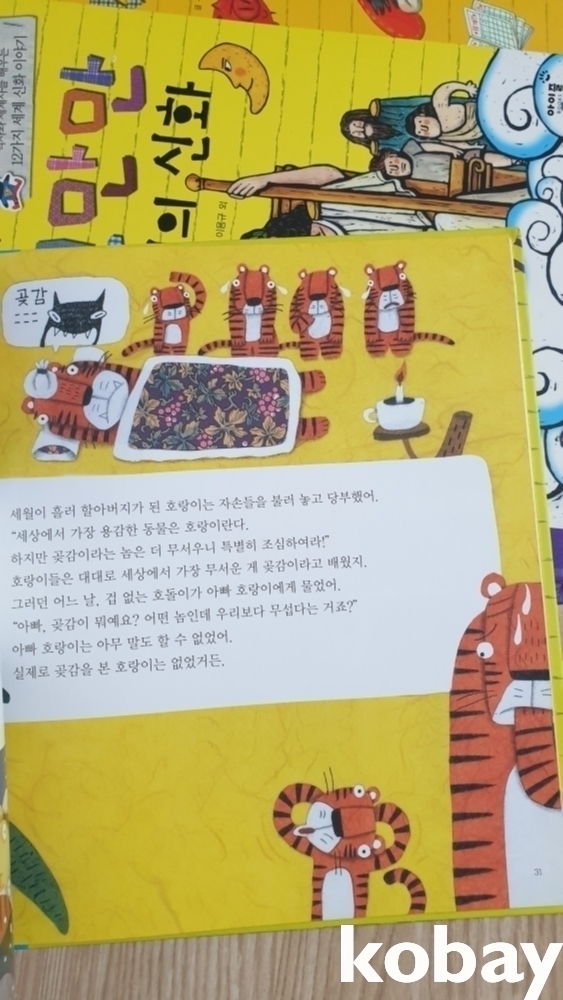 12가지 세계 신화 이야기
만만
의 신화
이용규 외
곶감
세월이 흘러 할아버지가 된 호랑이는 자손들을 불러 놓고 당부했어.
"세상에서 가장 용감한 동물은 호랑이란다.
하지만 곶감이라는 놈은 더 무서우니 특별히 조심하여라!"
호랑이들은 대대로 세상에서 가장 무서운 게 곶감이라고 배웠지.
그러던 어느 날, 겁 없는 호돌이가 아빠 호랑이에게 물었어.
"아빠, 곶감이 뭐예요? 어떤 놈인데 우리보다 무섭다는 거죠?"
아빠 호랑이는 아무 말도 할 수 없었어.
실제로 곶감을 본 호랑이는 없었거든.
31
kobay